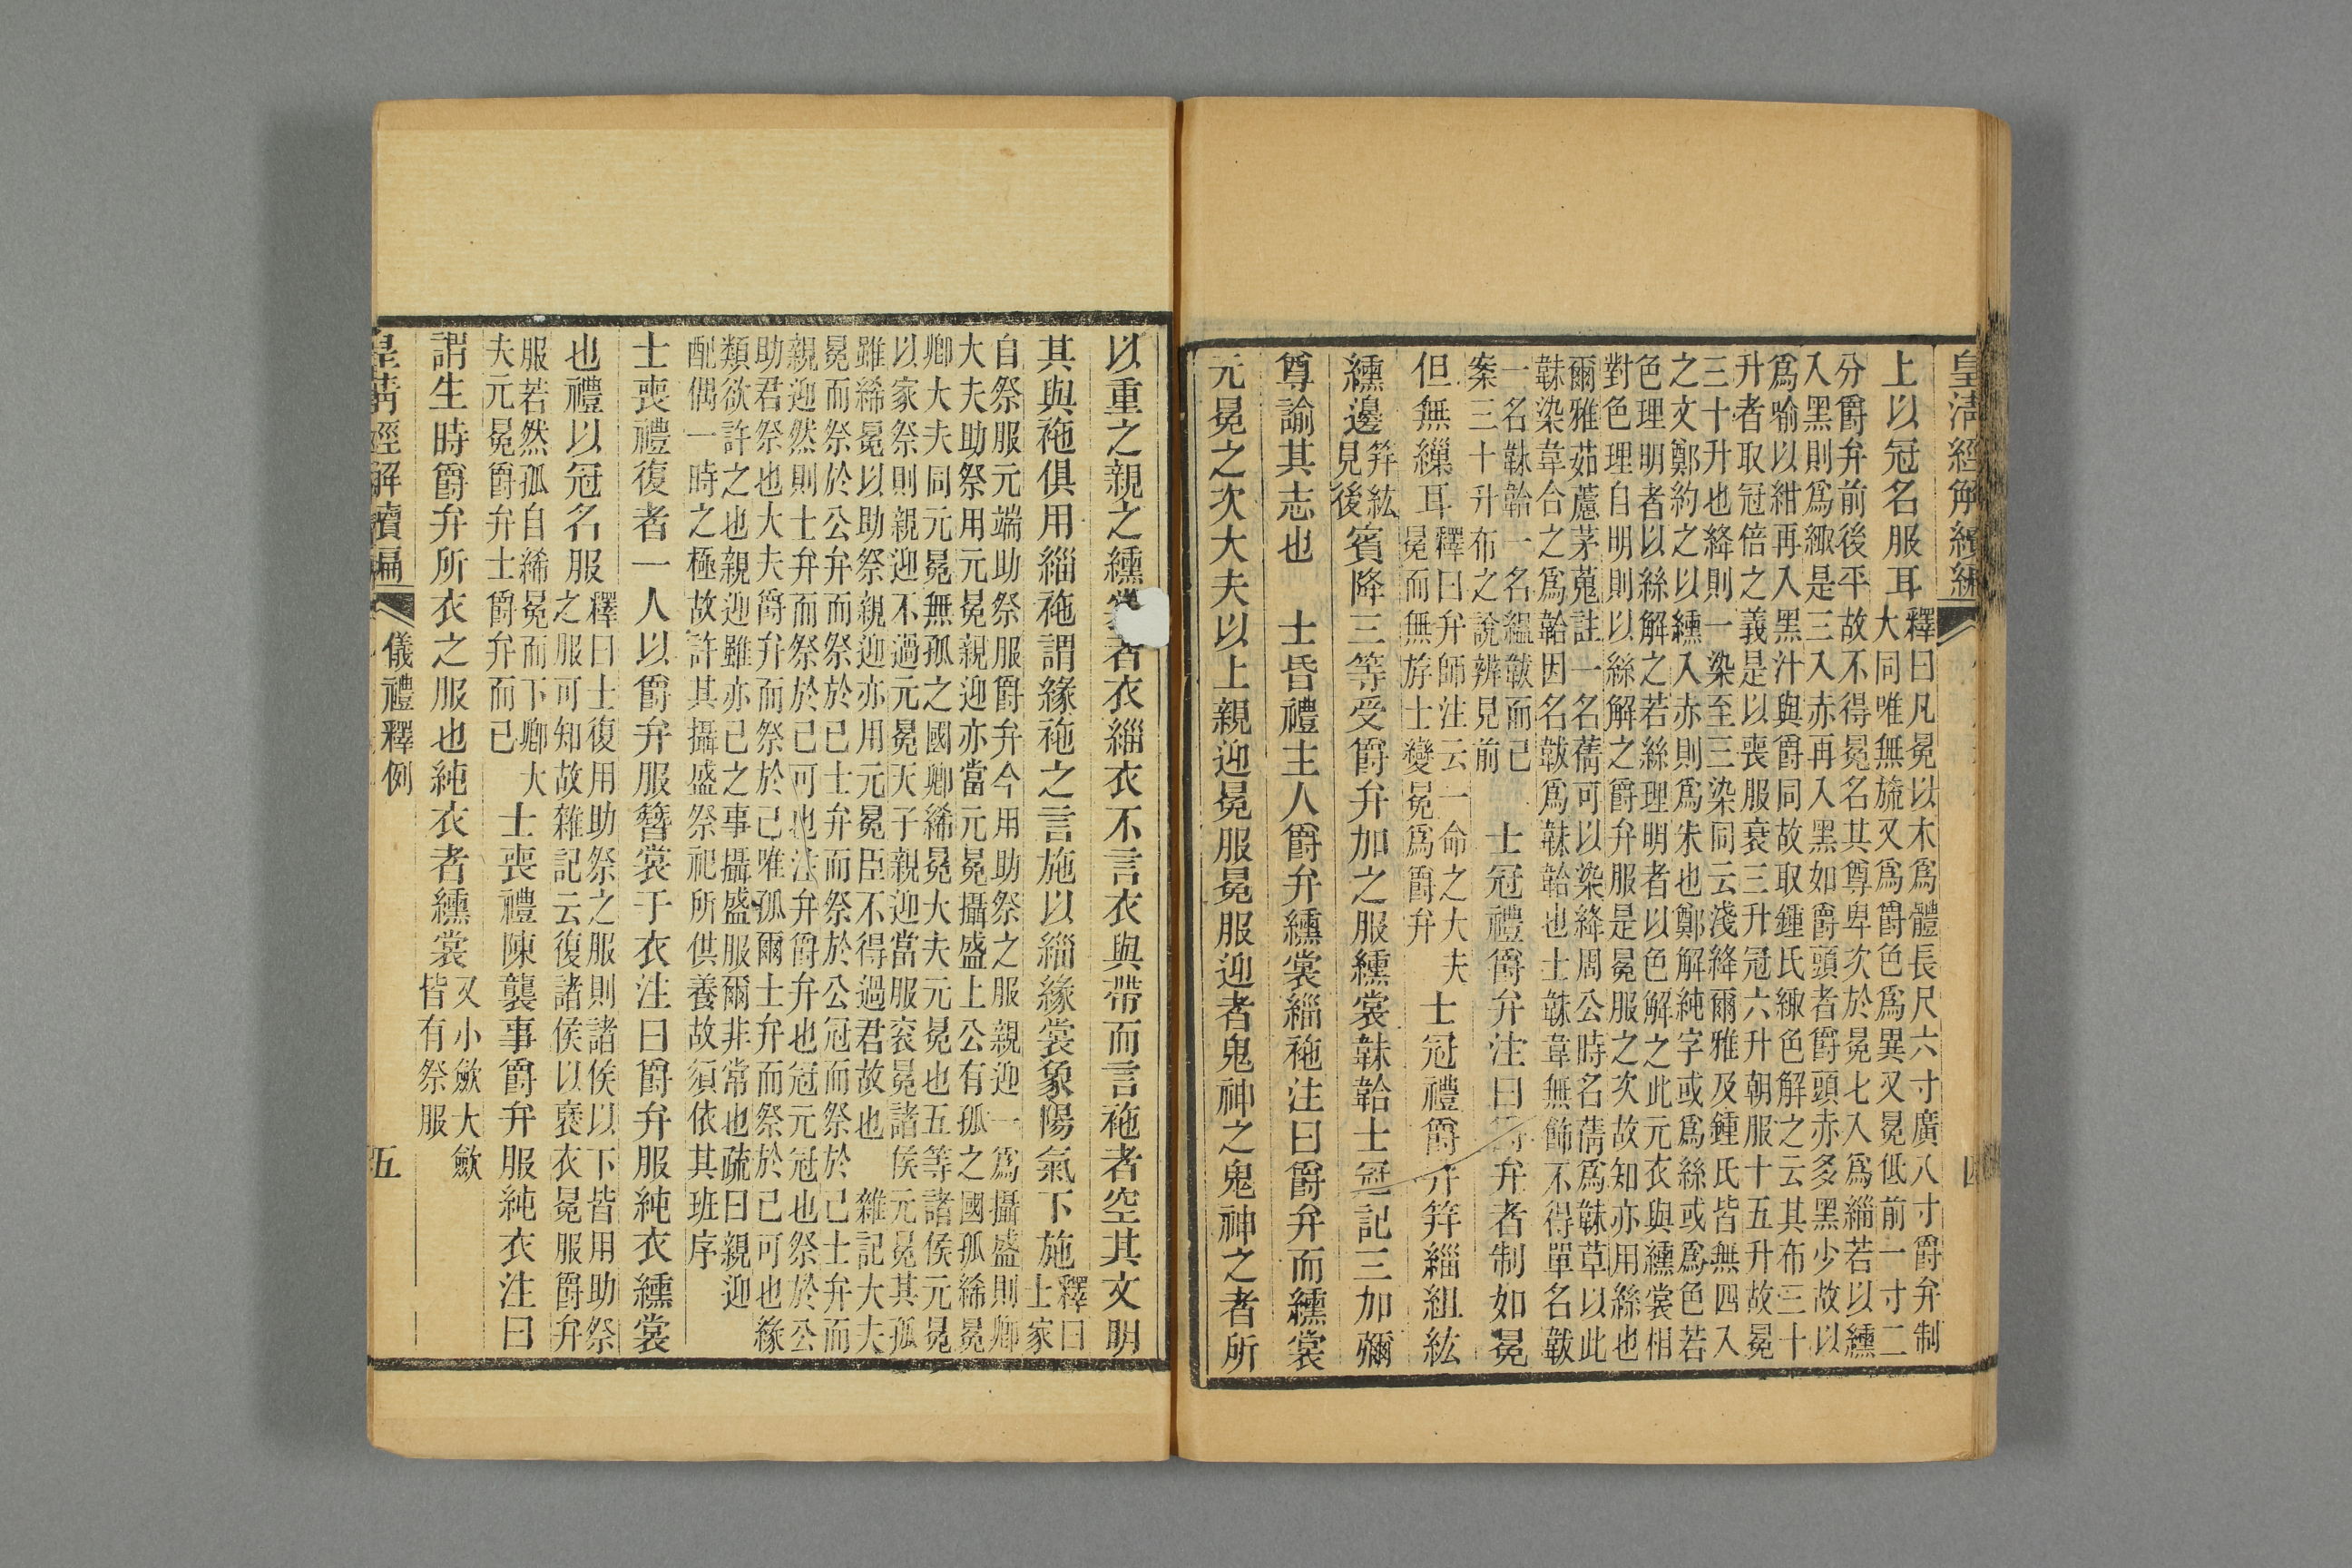 皇清經解續編
上以冠名服耳釋曰凡冕以木爲體長尺六寸廣八寸爵弁制
大同唯無旒又爲爵色爲異又冕低前一寸二
分爵弁前後平故不得冕名其尊卑次於冕七入爲緇若以纁
入黑則爲緅是三入赤再入黑如爵頭者爵頭赤多黑少故以
爲喻以紺再入黑汁與爵同故取鍾氏緅色解之云其布三十
升者取冠倍之義是以喪服衰三升冠六升朝服十五升故冕
三十升也絳則一染至三染同云淺絳爾雅及鍾氏皆無四入
之文鄭約之以纁入亦則爲朱也鄭解純字或爲絲或爲色若
色理明者以絲解之若絲理明者以色解之此元衣與纁裳相
對色理自明則以絲解之爵弁服是冕服之次故知亦用絲也
爾雅茹藘茅蒐註一名蒨可以染絳周公時名蒨爲韎草以此
韎染韋合之爲韐因名韍爲韎韐也士韎韋無飾不得單名韍
一名韎韐一名縕韍而已
案三十升布之說辨見前
士冠禮爵弁注曰爵弁者制如冕
但無繅耳釋曰弁師注云一命之大夫
冕而無斿士變冕爲爵弁
士冠禮爵弁笄緇組紘
纁邊笄紘
見後
賓降三等受爵弁加之服纁裳韎韐士冠記三加彌
尊諭其志也　士昏禮主人爵弁纁裳緇袘注曰爵弁而纁裳
元冕之次大夫以上親迎冕服冕服迎者鬼神之鬼神之者所
四
以重之親之纁裳者衣緇衣不言衣與帶而言袘者空其文明
其與袘俱用緇袘謂緣袘之言施以緇緣裳象陽氣下施釋曰
士家
自祭服元端助祭服爵弁今用助祭之服親迎一爲攝盛則卿
大夫助祭用元冕親迎亦當元冕攝盛上公有孤之國孤絺冕
卿大夫同元冕無孤之國卿絺冕大夫元冕也五等諸侯元冕
以家祭則親迎不過元冕天子親迎當服衮冕諸侯元冕其孤
雖絺冕以助祭親迎亦用元冕臣不得過君故也　雜記大夫
冕而祭於公弁而祭於已士弁而祭於公冠而祭於已士弁而
親迎然則士弁而祭於已可也注弁爵弁也冠元冠也祭於公
助君祭也大夫爵弁而祭於已唯孤爾士弁而祭於已可也緣
類欲許之也親迎雖亦已之事攝盛服爾非常也疏曰親迎
配偶一時之極故許其攝盛祭祀所供養故須依其班序
士喪禮復者一人以爵弁服簪裳于衣注曰爵弁服純衣纁裳
也禮以冠名服釋曰士復用助祭之服則諸侯以下皆用助祭
之服可知故雜記云復諸侯以襃衣冕服爵弁
服若然孤自絺冕而下卿大
夫元冕爵弁士爵弁而已
士喪禮陳襲事爵弁服純衣注曰
謂生時爵弁所衣之服也純衣者纁裳又小斂大斂
皆有祭服
皇清經解續編
儀禮釋例
五